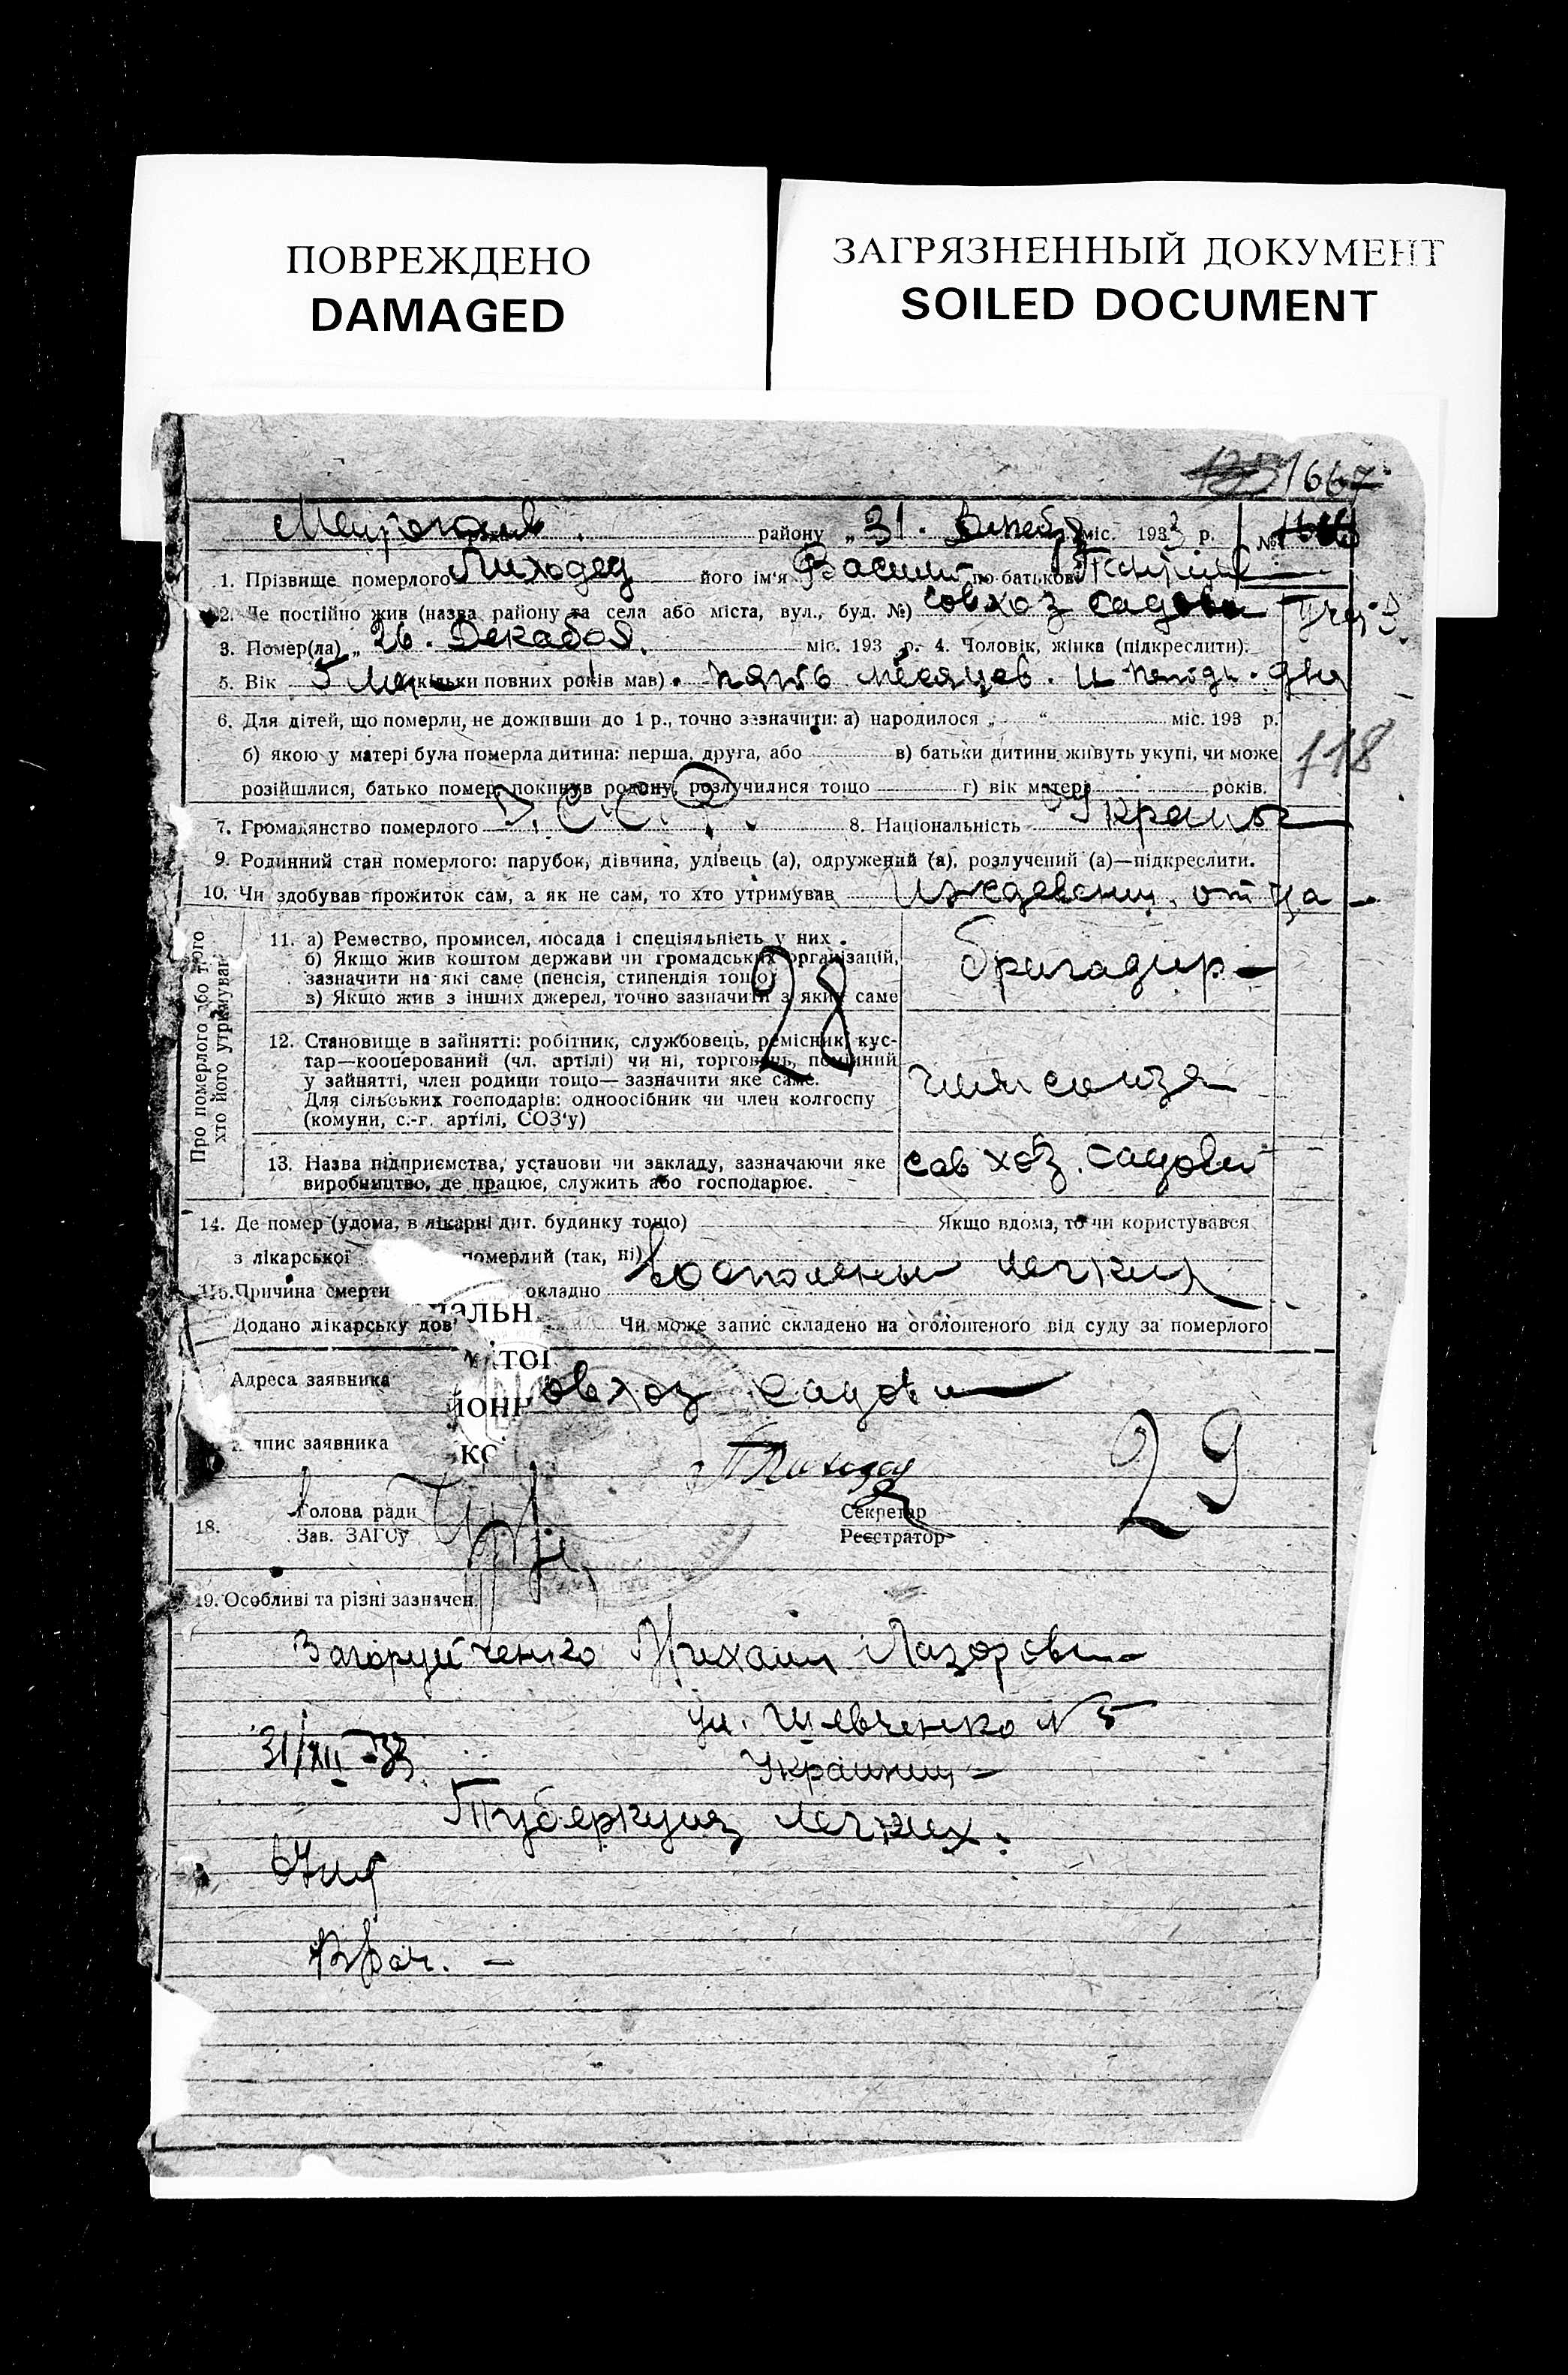 ПОВРЕЖДЕНО
DAMAGED
ЗАГРЯЗНЕННЫЙ ДОКУМЕНТ
SOILED DOCUMENT
1667
району „31. міс. 1933 р. №
1. Прізвище померлого Лиходед його ім'я Василий по батькові
2. Де постійно жив (назва району та села або міста, вул., буд. №) совхоз садовы
3. Помер(ла) „26. Декабря. міс. 193 р. 4. Чоловік, жінка (підкреслити).
5. Вік 5 мец (скільки повних років мав). пять месяцев. и дня
6. Для дітей, що померли, не доживши до 1 р., точно зазначити: а) народилося „ “ міс. 193 р.
118
б) якою у матері була померла дитина: перша, друга, або в) батьки дитини живуть укупі, чи може
розійшлися, батько помер, покинув родину, розлучилися тощо г) вік матері років.
7. Громадянство померлого С. С. Р. 8. Національність Украинец
9. Родинний стан померлого: парубок, дівчина, удівець (а), одружений (а), розлучений (а)—підкреслити.
10. Чи здобував прожиток сам, а як не сам, то хто утримував Иждевениц. отца
Про померлого або того
хто його утримував
11. а) Ремество, промисел, посада і спеціяльність у них.
б) Якщо жив коштом держави чи громадських організацій,
зазначити на які саме (пенсія, стипендія тощо)
в) Якщо жив з інших джерел, точно зазначити з яких саме
бригадир
28
12. Становище в зайнятті: робітник, службовець, ремісник, кус-
тар—кооперований (чл. артілі) чи ні, торговець, помічний
у зайнятті, член родини тощо— зазначити яке саме.
Для сільських господарів: одноосібник чи член колгоспу
(комуни, с.-г. артілі, СОЗ'у)
член союза
13. Назва підприємства, установи чи закладу, зазначаючи яке
виробництво, де працює, служить або господарює.
сав хоз. садовый
14. Де помер (удома, в лікарні дит. будинку тощо) Якщо вдома, то чи користувався
з лікарської померлий (так, ні)
15. Причина смерти окладно Восполение легких
Додано лікарську дов Чи може запис складено на оголошеного від суду за померлого
Адреса заявника овхоз садовы
підпис заявника Лиходед
29
18. Голова ради
Зав. ЗАГСу
Секретар
Реєстратор
19. Особливі та різні зазначен.
Загоруйченко Михаил Лазорович
ул. Шевченко № 5
31/XII-33
Украинец
Туберкулез легких.
Врач.